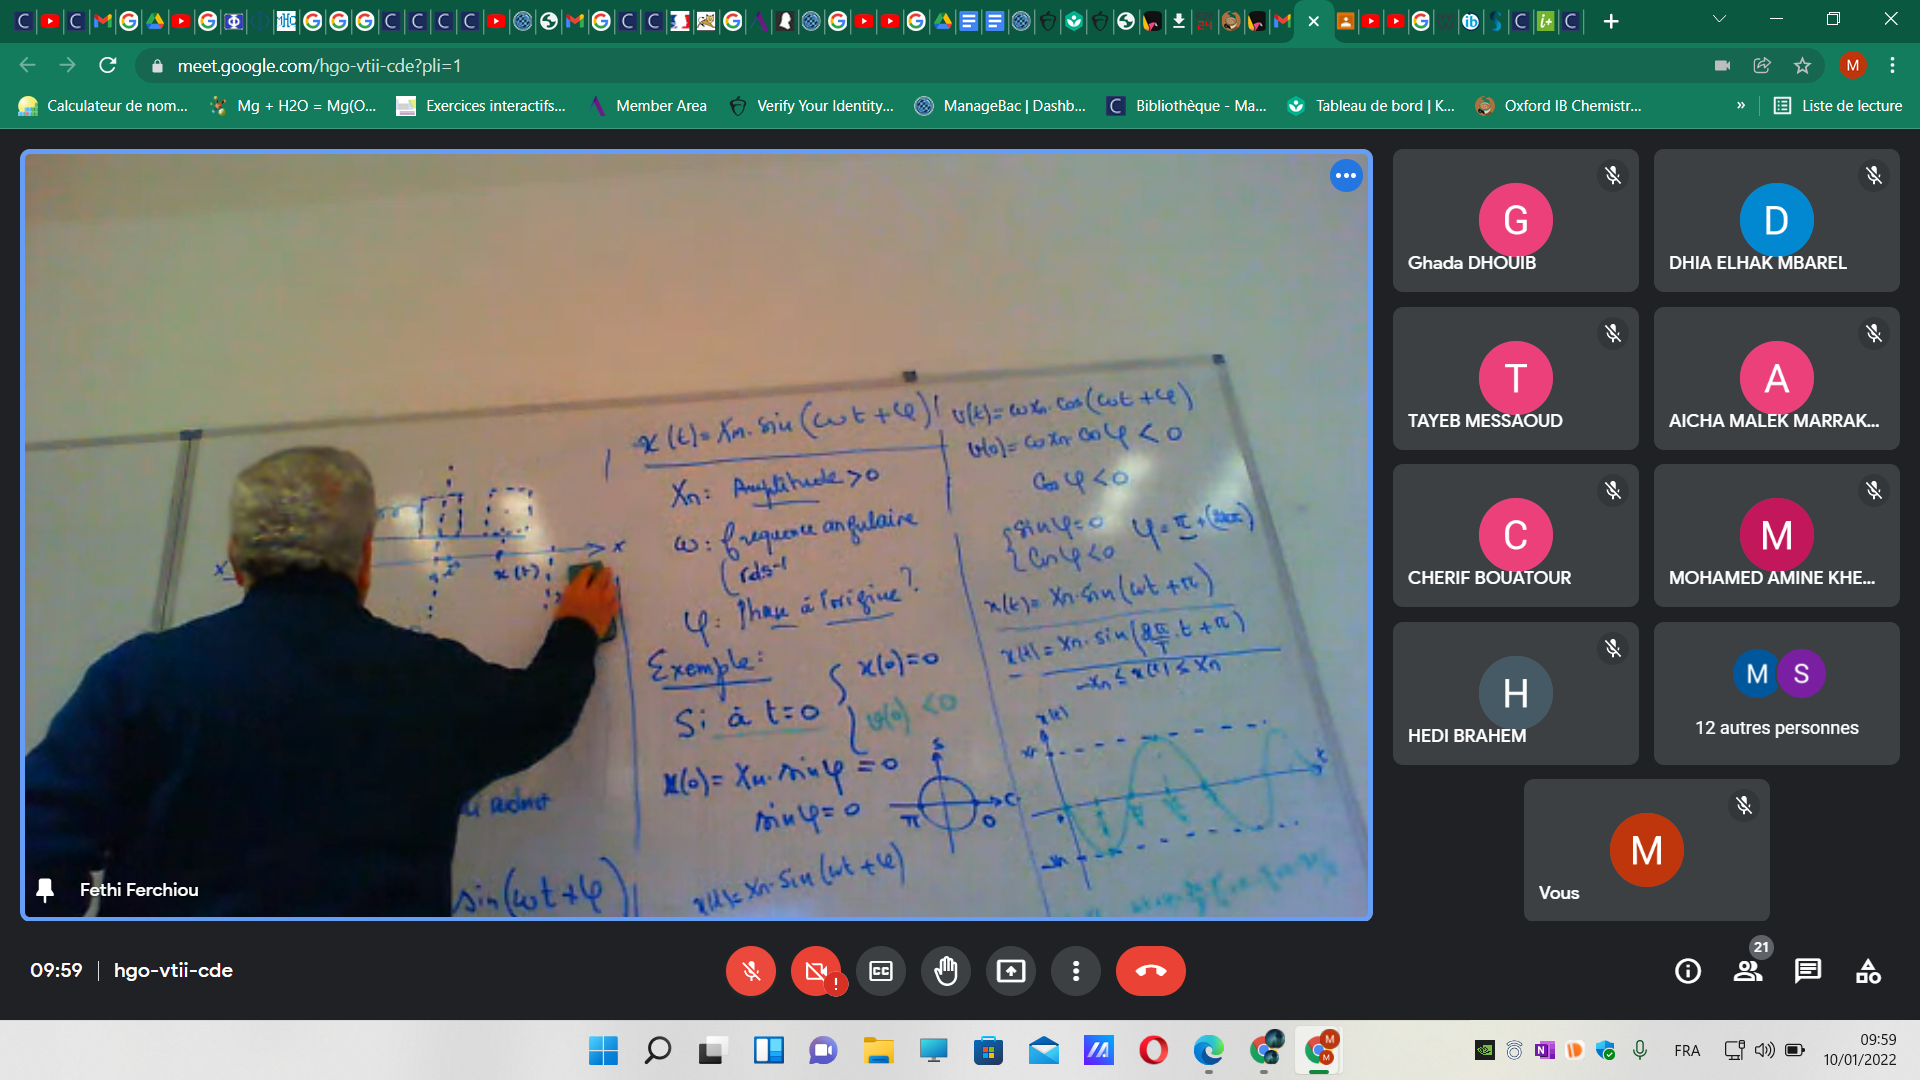 meet.google.com/hgo-vtii-cde?pli=1
M
Calculateur de nom...
Mg + H2O = Mg(O...
Exercices interactifs...
Member Area
Verify Your Identity...
ManageBac | Dashb...
Bibliothèque - Ma...
Tableau de bord | K...
Oxford IB Chemistr...
»
Liste de lecture
x(t) = Xm. sin(ωt + φ)
Xm: Amplitude > 0
ω: frequence angulaire
(rds-1
φ: Phase à l'origine?
Exemple:
Si à t=0
x(0)=0
v(0) < 0
x(0) = Xm. sin φ = 0
sin φ = 0
x(t) = Xm sin(ωt + φ)
S
C
π
0
v(t) = ωXm. cos(ωt + φ)
v(0) = ωXm cos φ < 0
cos φ < 0
sin φ = 0
cos φ < 0
x(t) = Xm. sin(ωt + π)
x(t) = Xm. sin(2π/T . t + π)
-Xm ≤ x(t) ≤ Xm
x(t)
x
x(t)
sin(ωt + φ)
Fethi Ferchiou
G
Ghada DHOUIB
D
DHIA ELHAK MBAREL
T
TAYEB MESSAOUD
A
AICHA MALEK MARRAK...
C
CHERIF BOUATOUR
M
MOHAMED AMINE KHE...
H
HEDI BRAHEM
M S
12 autres personnes
M
Vous
09:59 | hgo-vtii-cde
21
FRA
09:59
10/01/2022